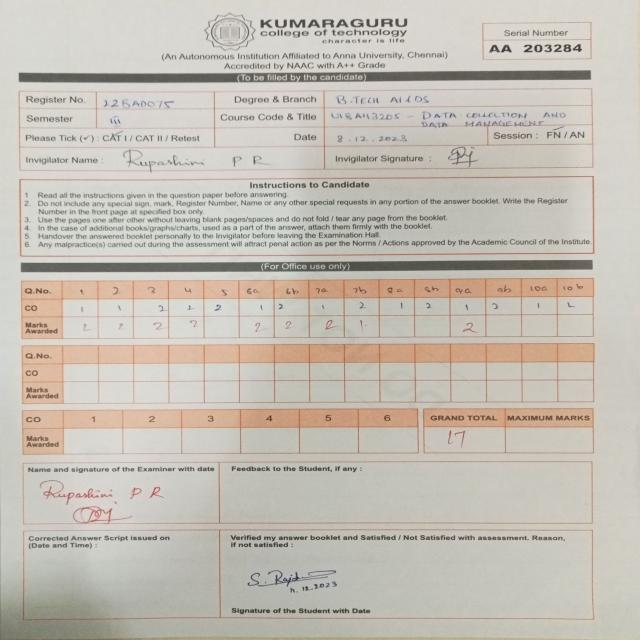 KUMARAGURU
college of technology
character is life
Serial Number
AA 203284
(An Autonomous Institution Affiliated to Anna University, Chennai)
Accredited by NAAC with A++ Grade
(To be filled by the candidate)
Register No. 22BAD075 Degree & Branch B.TECH AI&DS
Semester III Course Code & Title U18AII3205 - DATA COLLECTION AND DATA MANAGEMENT
Please Tick (✓) : CAT I / CAT II / Retest Date 8.12.2023 Session : FN / AN
Invigilator Name : Rupashini P R Invigilator Signature :
Instructions to Candidate
1 Read all the instructions given in the question paper before answering.
2. Do not include any special sign, mark, Register Number, Name or any other special requests in any portion of the answer booklet. Write the Register
Number in the front page at specified box only.
3. Use the pages one after other without leaving blank pages/spaces and do not fold / tear any page from the booklet.
4. In the case of additional books/graphs/charts, used as a part of the answer, attach them firmly with the booklet.
5. Handover the answered booklet personally to the Invigilator before leaving the Examination Hall.
6. Any malpractice(s) carried out during the assessment will attract penal action as per the Norms / Actions approved by the Academic Council of the Institute.
(For Office use only)
Q.No. 1 2 3 4 5 6a 6b 7a 7b 8a 8b 9a 9b 10a 10b
CO 1 1 2 2 2 1 2 1 2 1 2 1 2 1 2
Marks Awarded 2 2 2 2 2 2 2 1 2
Q.No.
CO
Marks Awarded
CO 1 2 3 4 5 6 GRAND TOTAL MAXIMUM MARKS
Marks Awarded 17
Name and signature of the Examiner with date
Feedback to the Student, if any :
Rupashini P R
Corrected Answer Script issued on
(Date and Time) :
Verified my answer booklet and Satisfied / Not Satisfied with assessment. Reason,
if not satisfied :
11.12.2023
Signature of the Student with Date